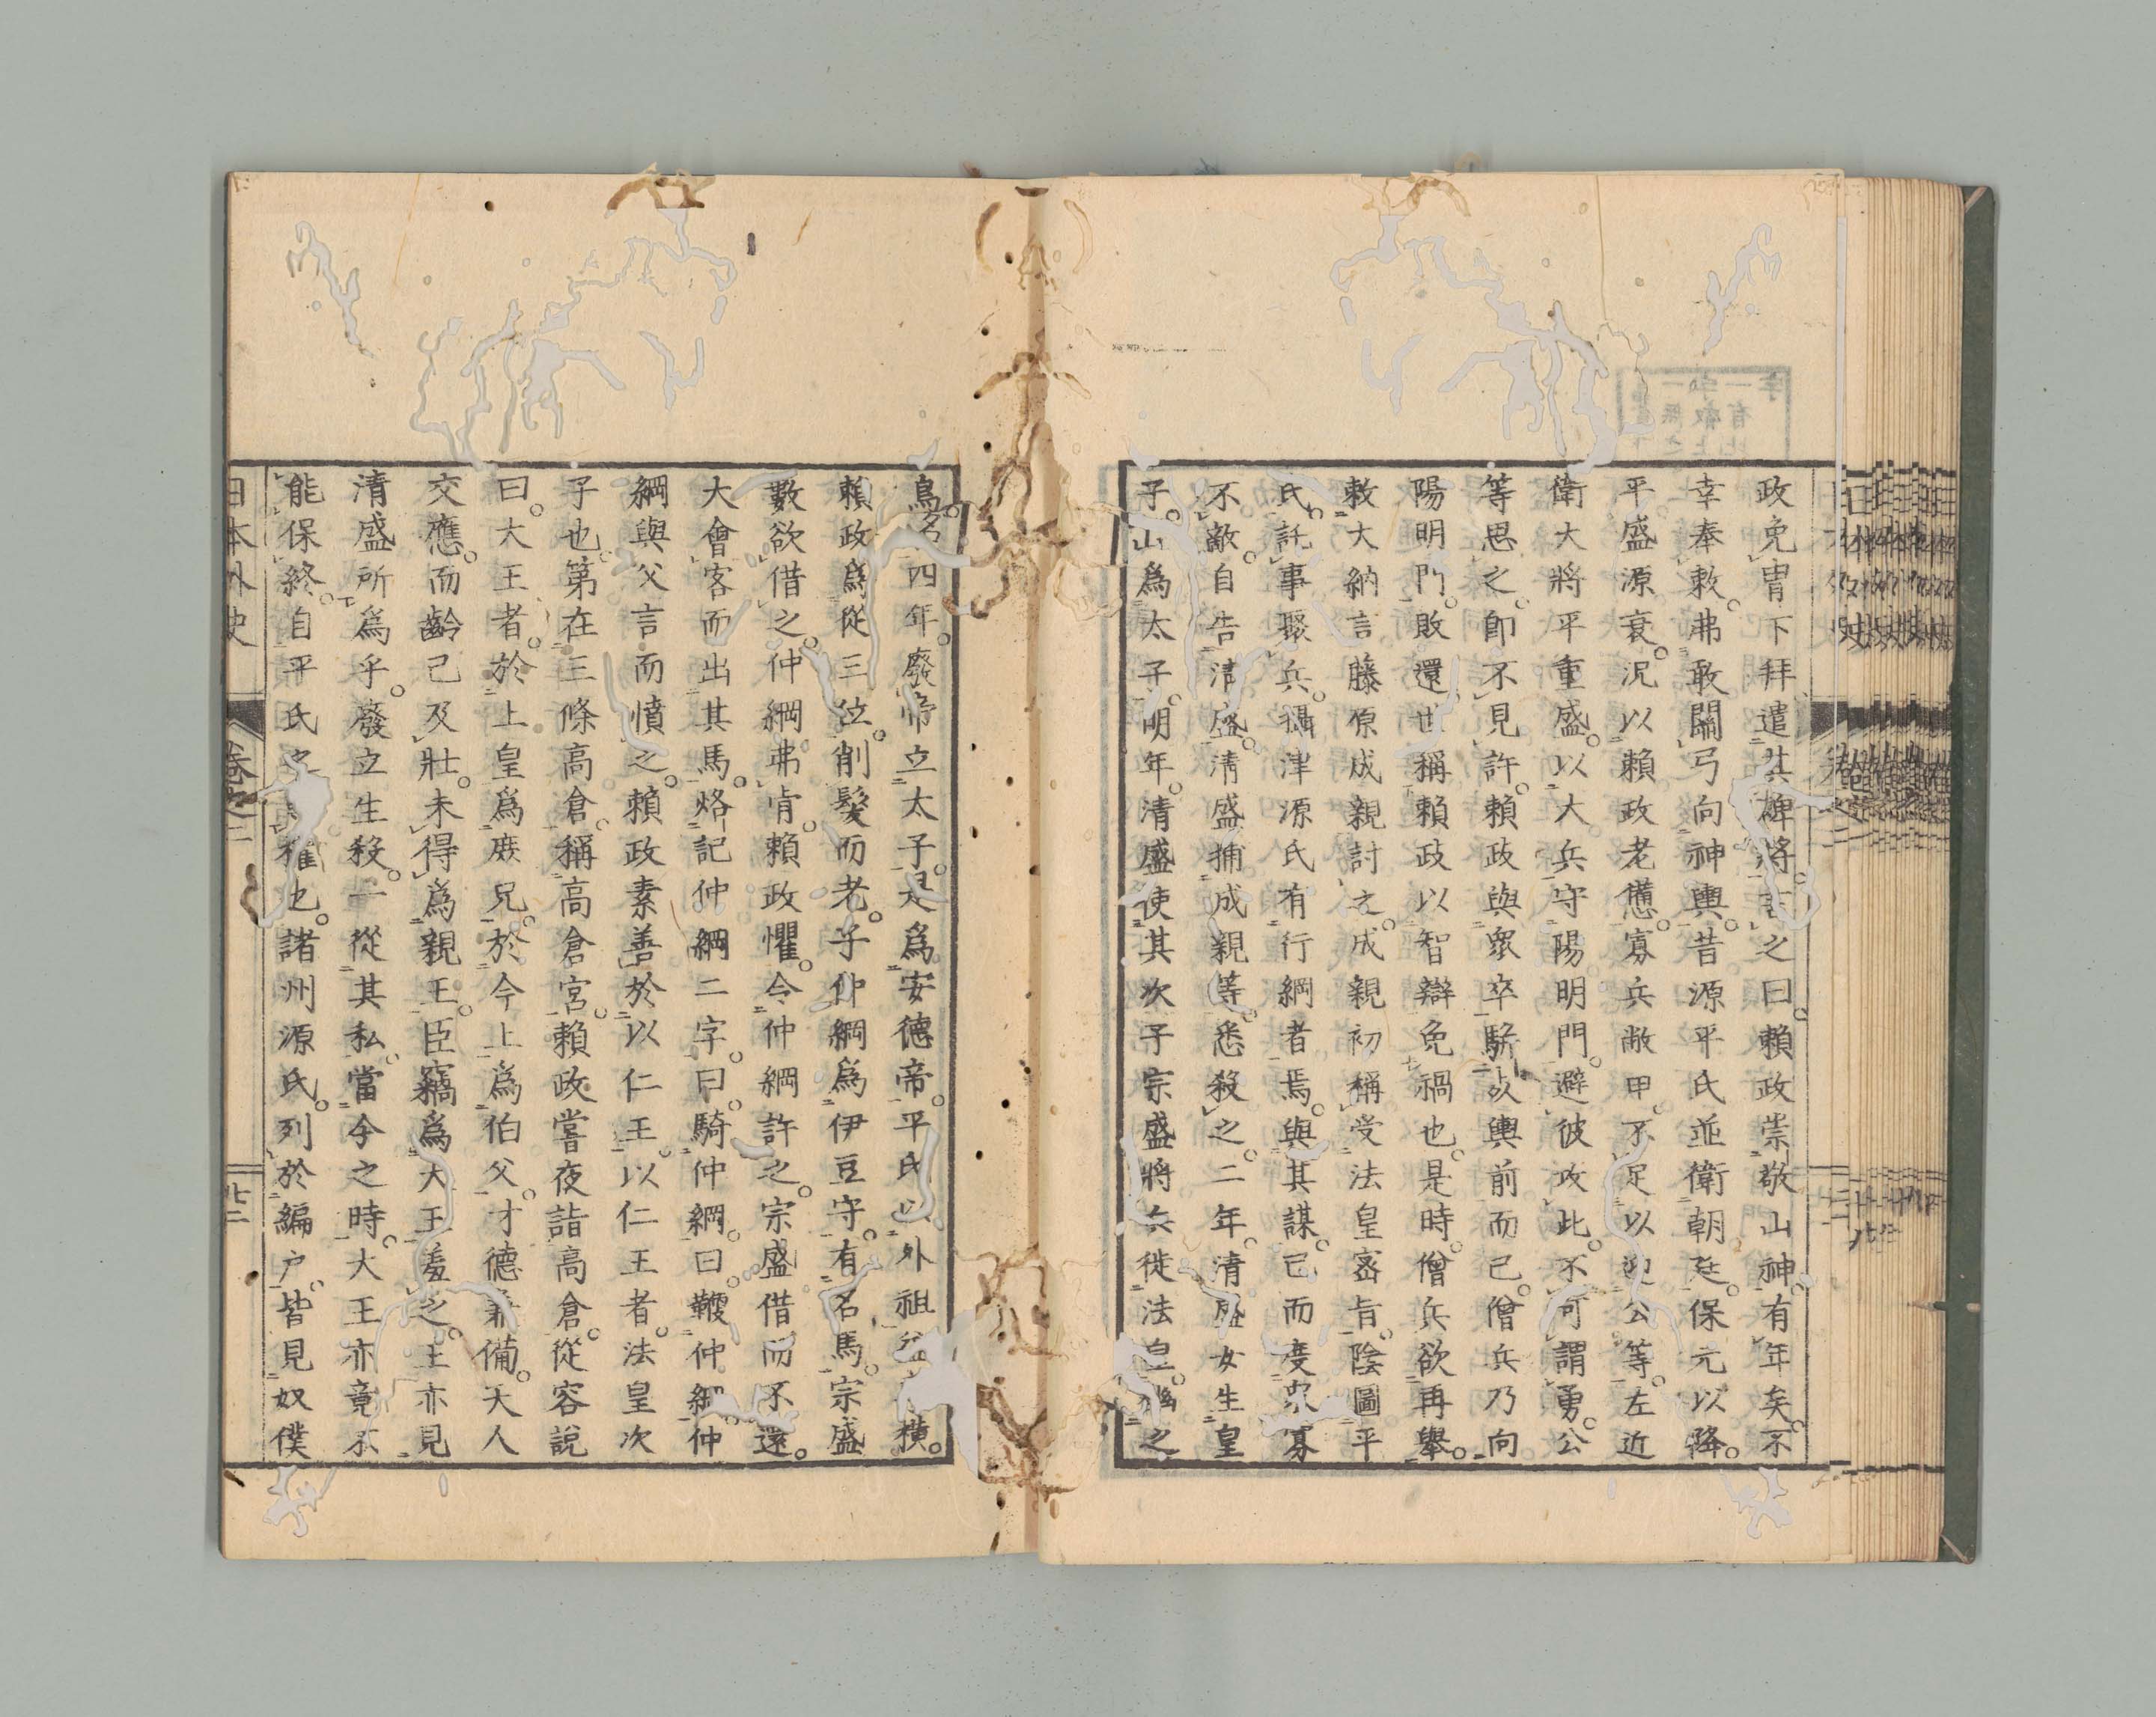 政免冑下拜遣其裨將言之曰。賴政崇敬山神。有年矣。不
幸奉敕。弗敢關弓向神輿。昔源平氏並衛朝廷。保元以降。
平盛源衰。況以賴政老憊。寡兵敝甲。不足以迎公等。左近
衛大將平重盛。以大兵守陽明門。避彼攻此。不可謂勇。公
等思之。卽不見許。賴政與衆卒駢以輿前而已。僧兵乃向
陽明門。敗還。世稱賴政以智辯免禍也。是時。僧兵欲再舉。
敕大納言藤原成親討之。成親初稱受法皇密旨。陰圖平
氏。託事聚兵。攝津源氏有行綱者焉。與其謀。已而度衆寡
不敵。自告淸盛。淸盛捕成親等。悉殺之。二年。清盛女生皇
子。山爲太子。明年。清盛使其次子宗盛將兵徙法皇。幽之
鳥名四年。廢帝立太子。是爲安德帝。平氏以外祖益橫。
賴政爲從三位。削髮而老。子仲綱爲伊豆守。有名馬。宗盛
數欲借之。仲綱弗肯。賴政懼。令仲綱許之。宗盛借而不還。
大會客而出其馬。烙記仲綱二字。曰。騎仲綱。曰。鞭仲綱。仲
綱與父言而憤之。賴政素善於以仁王。以仁王者。法皇次
子也。第在三條高倉。稱高倉宮。賴政嘗夜詣高倉。從容說
曰。大王者。於上皇爲庶兄。於今上爲伯父。才德兼備。天人
交應。而齡已及壯。未得爲親王。臣竊爲大王羞之。王亦見
清盛所爲乎。廢立生殺。一從其私。當今之時。大王亦竟不
能保終。自平氏之 權也。諸州源氏。列於編戶。皆見奴僕
日本外史 卷之二 廿二